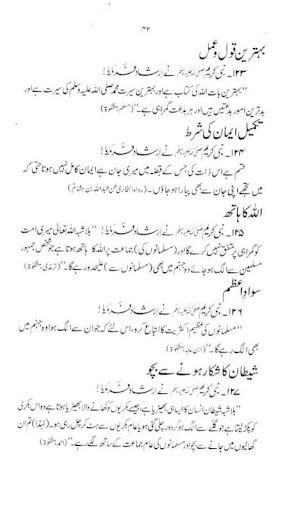 ۴۲
بہترین قول و عمل
۱۲۳۔ نبی کریم صلی اللہ علیہ وسلم نے ارشاد فرمایا!
"بہترین بات اللہ کی کتاب ہے اور بہترین سیرت محمد صلی اللہ علیہ وسلم کی سیرت ہے اور
بدترین امور بدعتیں ہیں اور ہر بدعت گمراہی ہے۔" (مسلم، مشکوٰۃ)
تکمیل ایمان کی شرط
۱۲۴۔ نبی کریم صلی اللہ علیہ وسلم نے ارشاد فرمایا!
قسم ہے اس ذات کی جس کے قبضہ میں میری جان ہے ایمان کامل نہیں ہوتا حتیٰ کہ
میں تجھے اپنی جان سے بھی پیارا ہو جاؤں۔ (رواہ البخاری عن عبداللہ بن ہشام)
اللہ کا ہاتھ
۱۲۵۔ نبی کریم صلی اللہ علیہ وسلم نے ارشاد فرمایا! "بلاشبہ اللہ تعالیٰ میری امت
کو گمراہی پر متفق نہیں کرے گا اور (مسلمانوں کی) جماعت پر اللہ کا ہاتھ ہوتا ہے جو شخص جمہور
مسلمین سے الگ ہو جائے وہ جہنم میں بھی (مسلمانوں سے) علیحدہ رہے گا۔" (ترمذی، مشکوٰۃ)
سواد اعظم
۱۲۶۔ نبی کریم صلی اللہ علیہ وسلم نے ارشاد فرمایا!
"مسلمانوں کی عظیم اکثریت کا اتباع کرو، اس لئے کہ جو ان سے الگ ہوا وہ جہنم میں
بھی الگ رہے گا۔" (ابن ماجہ، مشکوٰۃ)
شیطان کا شکار ہونے سے بچو
۱۲۷۔ نبی کریم صلی اللہ علیہ وسلم نے ارشاد فرمایا!
"بلاشبہ شیطان انسان کا ایسا ہی بھیڑیا ہے، جیسے بکریوں کو کھانے والا بھیڑیا ہوتا ہے وہ اس بکری
کو پکڑ لیتا ہے جو گلے سے الگ ہو کر دور چلی گئی ہو یا بکریوں سے ہٹ کر چل رہی ہو۔ (لہٰذا) تم ان
گھاٹیوں میں جانے سے بچو اور مسلمانوں کی عام جماعت کے ساتھ لگے رہے۔" (احمد، مشکوٰۃ)